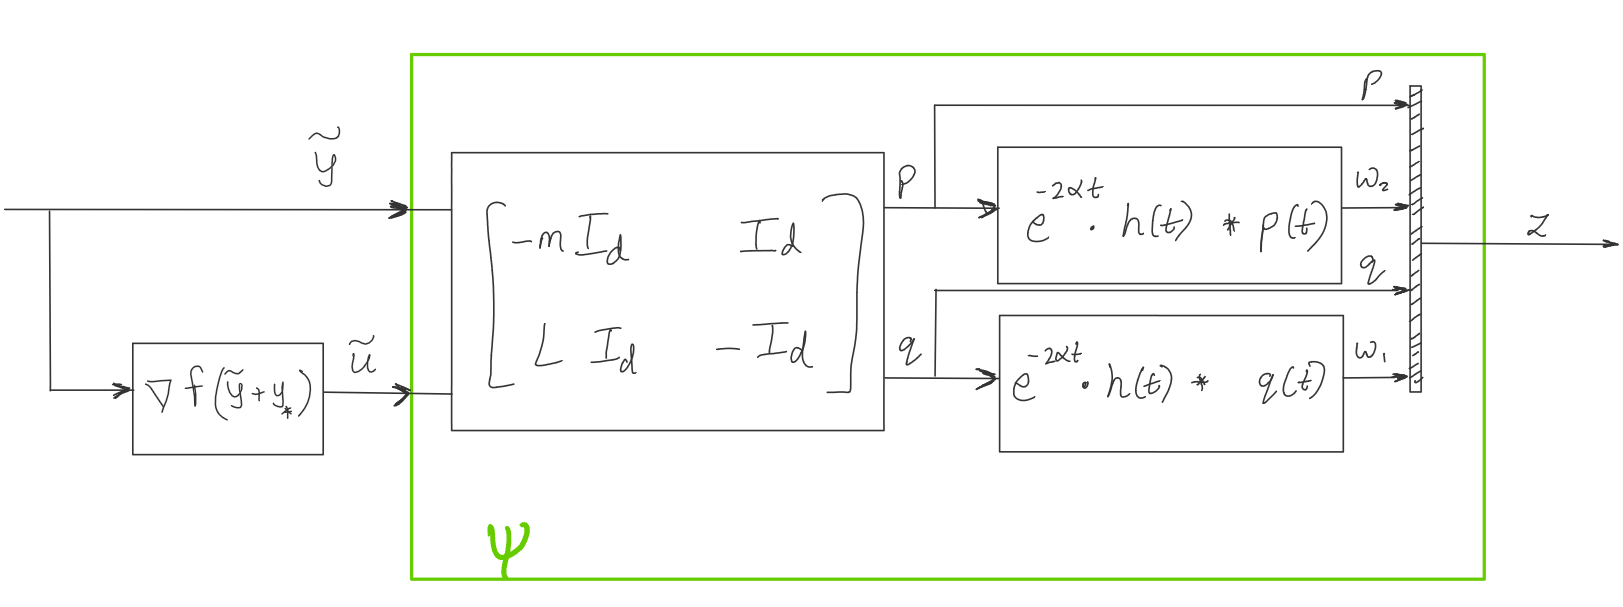 ỹ
∇f(ỹ+y*)
ũ
-m I_d I_d
L I_d -I_d
p
q
p
e^{-2αt} · h(t) * p(t)
w₂
q
e^{-2αt} · h(t) * q(t)
w₁
z
Ψ